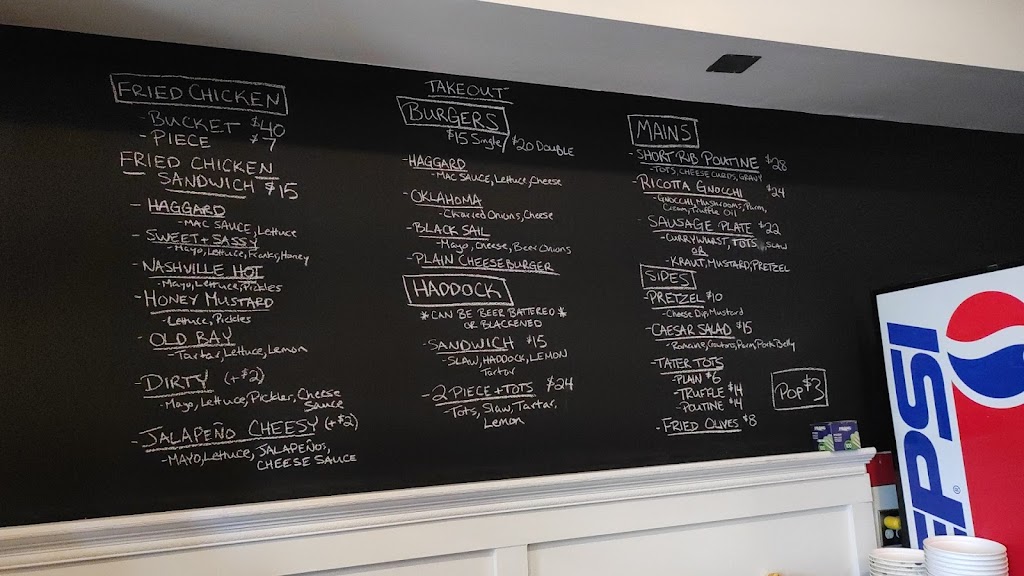 FRIED CHICKEN
- BUCKET $40
- PIECE $7
FRIED CHICKEN
SANDWICH $15
- HAGGARD
- MAC SAUCE, Lettuce
- SWEET + SASSY
- Mayo, Lettuce, Franks, Honey
- NASHVILLE HOT
- Mayo, Lettuce, Pickles
- HONEY MUSTARD
- Lettuce, Pickles
- OLD BAY
- Tartar, Lettuce, Lemon
- DIRTY (+$2)
- Mayo, Lettuce, Pickles, Cheese
Sauce
- JALAPEÑO CHEESY (+$2)
- MAYO, Lettuce, JALAPEÑOS,
CHEESE SAUCE
TAKEOUT
BURGERS
$15 Single/ $20 DOUBLE
- HAGGARD
- MAC SAUCE, Lettuce, Cheese
- OKLAHOMA
- Charred Onions, Cheese
- BLACK SAIL
- Mayo, Cheese, Beer Onions
- PLAIN CHEESEBURGER
HADDOCK
* CAN BE BEER BATTERED *
OR BLACKENED
- SANDWICH $15
- SLAW, HADDOCK, LEMON
Tartar
- 2 PIECE + TOTS $24
Tots, Slaw, Tartar,
Lemon
MAINS
- SHORT RIB POUTINE $28
- TOTS, CHEESE CURDS, GRAVY
- RICOTTA GNOCCHI $24
- GNOCCHI, Mushrooms, Parm,
Cream, Truffle Oil
- SAUSAGE PLATE $22
- CURRYWURST, TOTS, SLAW
OR
- KRAUT, MUSTARD, PRETZEL
SIDES
- PRETZEL $10
- Cheese Dip, Mustard
- CAESAR SALAD $15
- Romaine, Croutons, Parm, Pork Belly
- TATER TOTS
- PLAIN $6
- TRUFFLE $14
- POUTINE $14
- FRIED OLIVES $8
POP $3
PEPSI